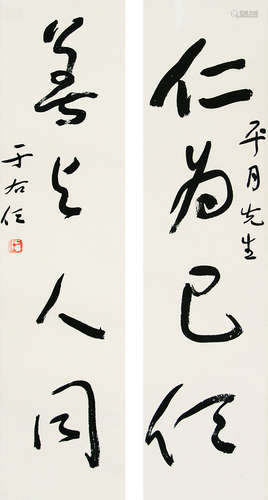 仁为己任
平月先生
善与人同
于右任